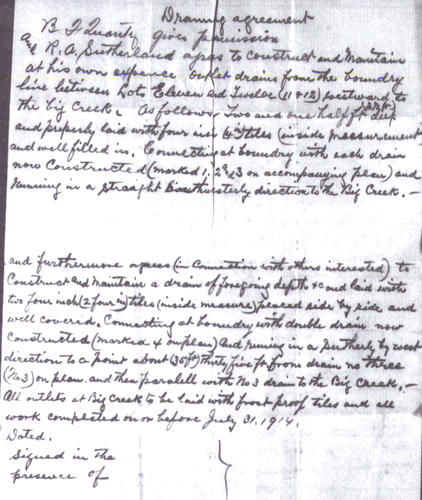 Draining agreement
B F Quanty gives permission
and R. A. Sutherland agrees to construct and Maintain
at his own expence outlet drains from the boundry
line between Lots Eleven and Twelve (11 & 12) westward to
the big Creek. As follows, Two and one half ft deep
and properly laid with four inch 4in tiles (inside measurement
and well filled in. Connecting at boundry with each drain
now Constructed (marked 1, 2 and 3 on accompanying plan) and
running in a straight Southwesterly direction to the Big Creek. —
and furthermore agrees (in Connection with others interested) to
Construct and Maintain a drain of foregoing depth &c and laid with
two four inch (2 four in) tiles (inside measure) placed side by side and
well covered. Connecting at boundry with double drain now
Constructed (marked 4 on plan) and running in a Sutherly by west
direction to a point about thirty five ft from drain no three
(No 3) on plan. and then paralell with No 3 drain to the Big Creek. —
All outlets at Big Creek to be laid with frost proof tiles and all
work completed on or before July 31, 1914.
Dated.
Signed in the
presence of